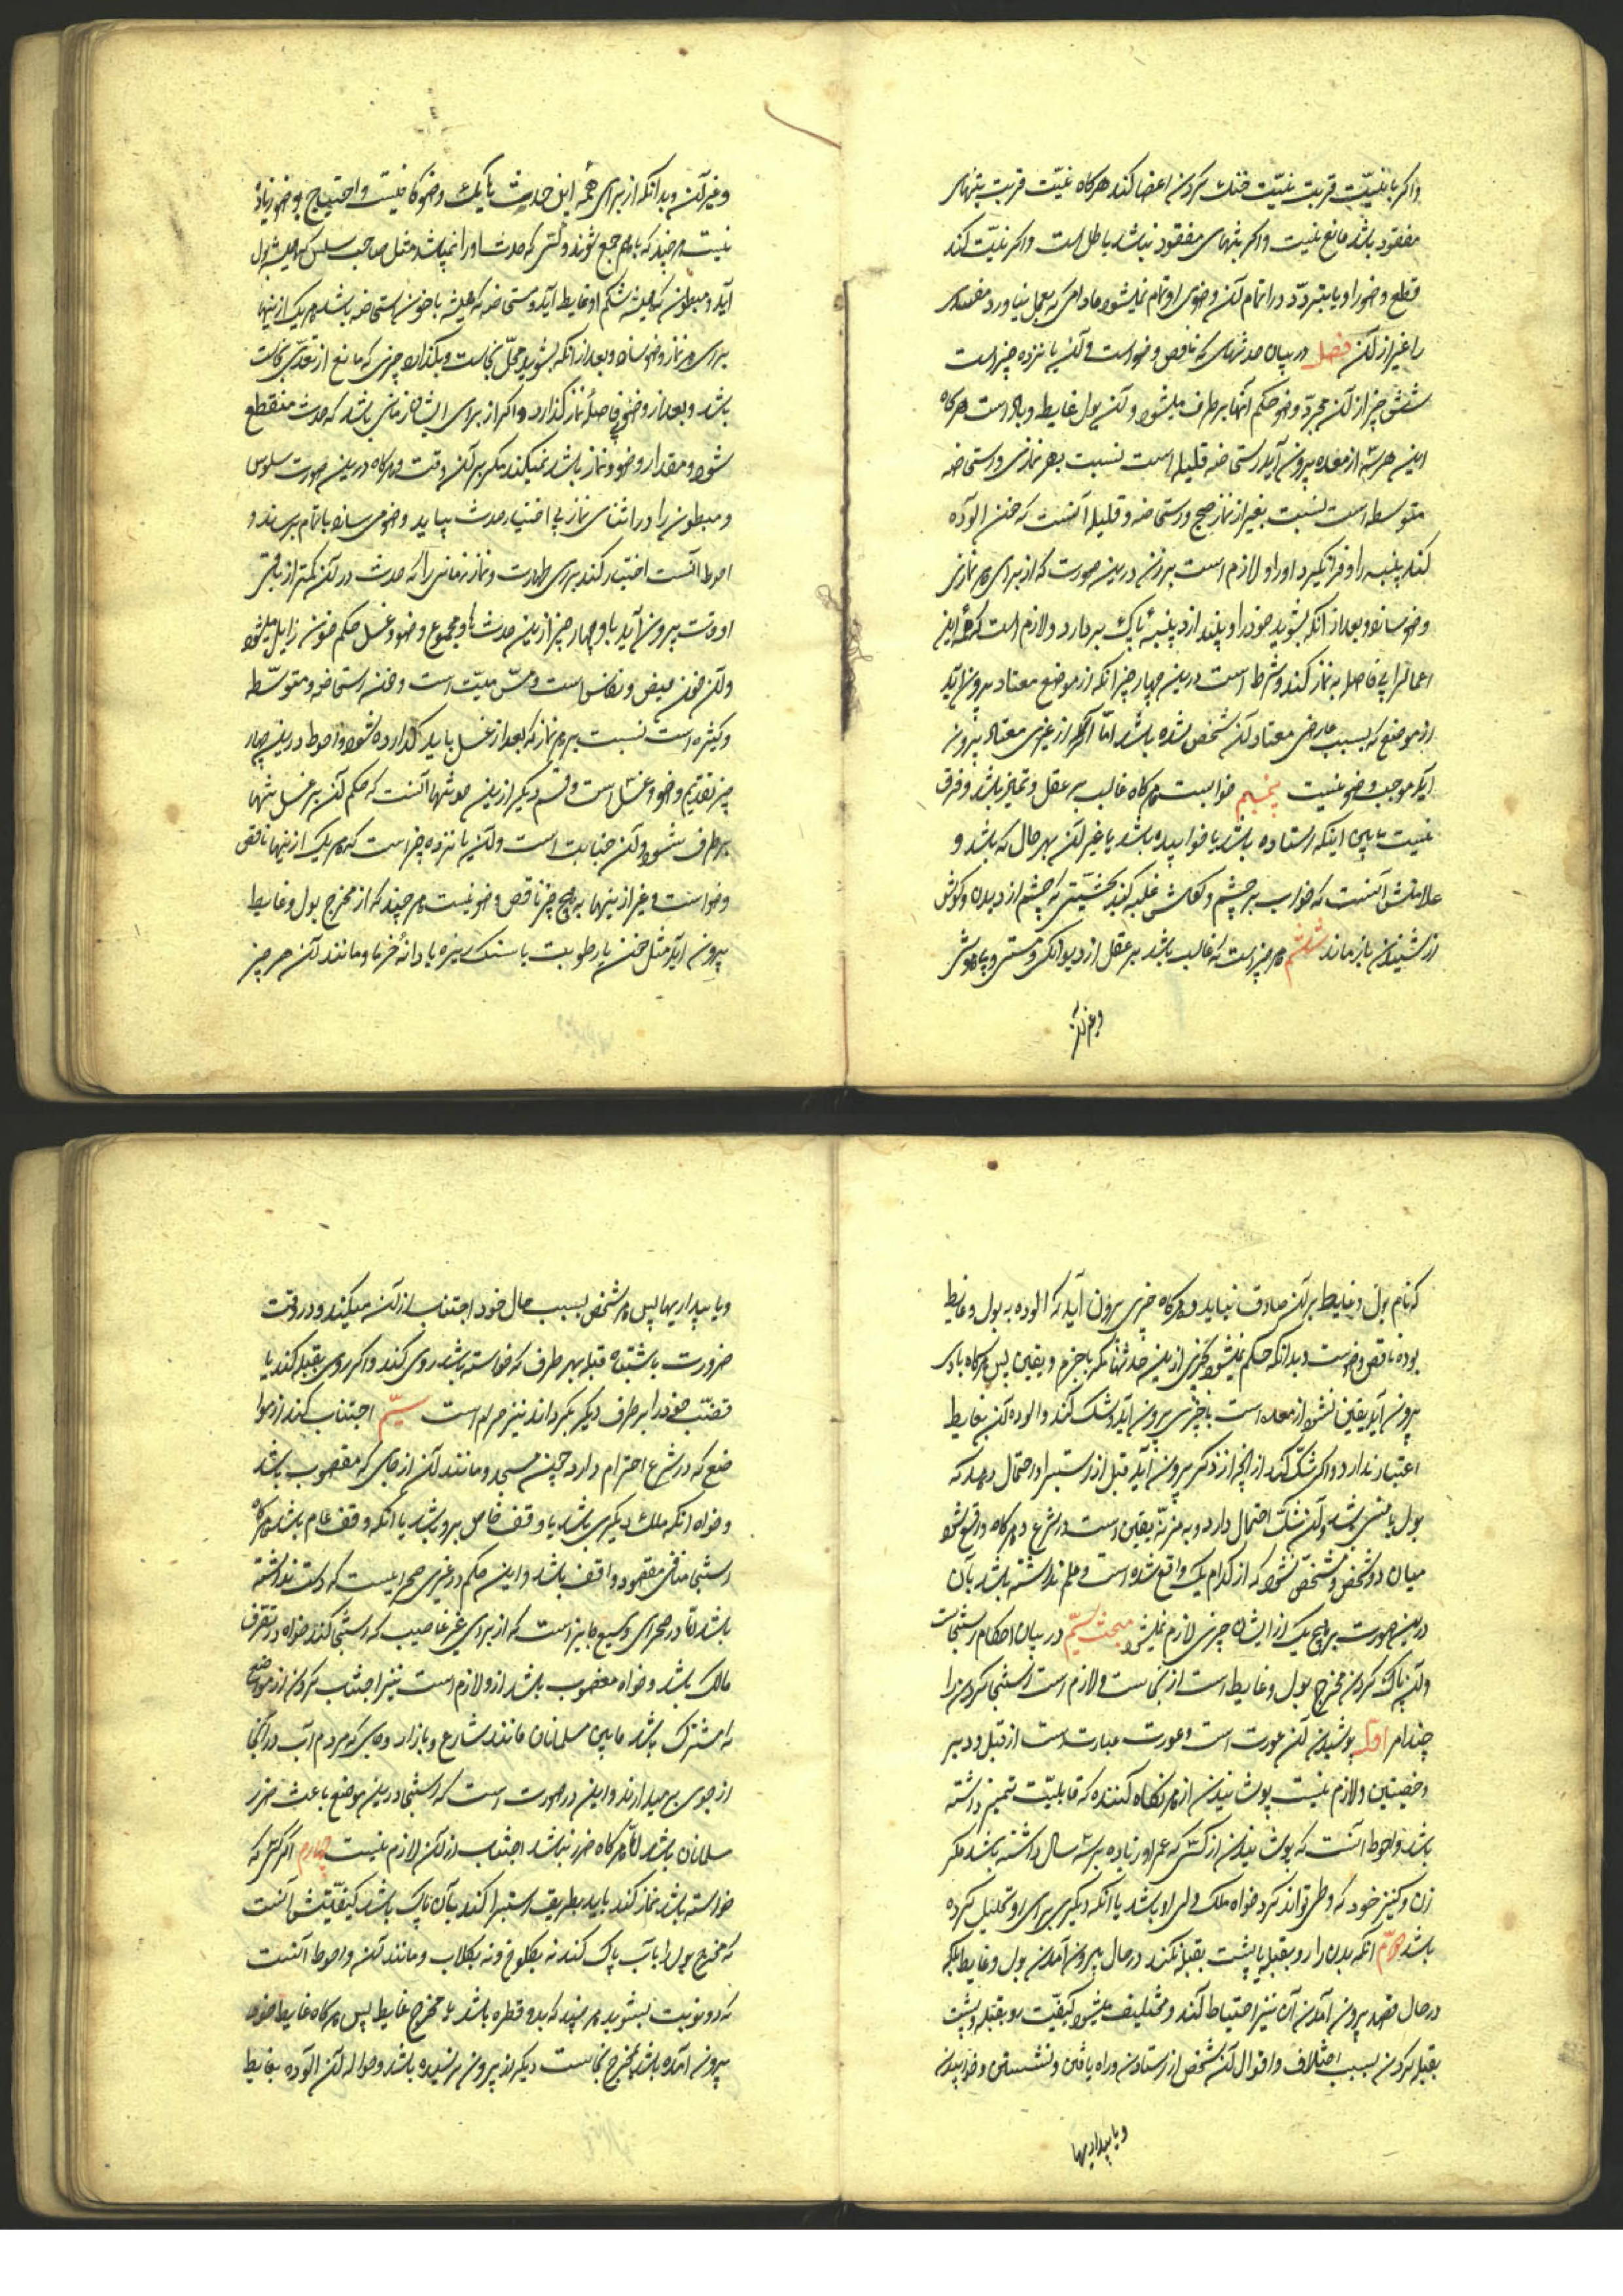 واکر با نیّت قربت نیّت خنک کردن اعضا کند هرکاه نیّت قربت بتنهای
مفقود باشد مانع نیست واکر بتنهای مفقود نباشد باطل است واکر نیّت کند
قطع وضو را و یا بتردّد در اتمام آن وضوی او تمام نمیشود مادامی که بعمل نیاورد مفسدی
را غیر از آن فصل در بیان حدثهای که ناقص وضو است و آن یانزده چیز است
شش چیز از آن مجرّد وضو حکم آنها برطرف میشود و آن بول غایط و باد است هرکاه
این هر سه از معده بیرون آید و استحاضه قلیله است نسبت بهر نمازی و استحاضه
متوسطه است نسبت بغیر از نماز صبح و استحاضه و قلیله آنست که خون الوده
کند پنبه را و فرا نکیرد او را و لازم است بر زن درین صورت که از برای هر نمازی
وضو سازد و بعد از آنکه بشوید خود را و پنبه از د پنبهٔ پاک بردارد و لازم است که این
اعمال را بی فاصله به نماز کند و شرط است درین چهار چیز انکه از موضع معتاد بیرون آید
از موضع که بسبب عارضی معتاد آن شخص شده باشد امّا اکر از غیری معتاد بیرون
آید موجب وضو نیست پنجم خوابست هرکاه غالب بر عقل و تمیز باشد و فرق
نیست مابین اینکه استاده باشد یا خوابیده باشد یا غیر آن بهر حال که باشد و
علامتش آنست که خواب بر چشم و کوش غلبه کند بحیثیتی که چشم از دیدن و کوش
از شنیدن باز ماند ششم هر چیز است که غالب باشد بر عقل از دیوانکی و مستی و بیهوشی
وغیر آن
وغیر آن و بدانکه از برای همهٔ این حدث ها یک وضو کافیست و احتیاج بوضو زیاده
نیست هر چند که باهم جمع شوند و کسی که حدث او را نمیپاشد مثل صاحب سلس که همیشه بول
آید و مبطون که همیشه شکم او غایط آید و مستحاضه که همیشه با خون استحاضه باشد هر یک از اینها
برای هر نماز وضو سازد و بعد از انکه بشوید محلّ نجاست و بکذارد چیزی که مانع از تعدّی نجاست
باشد و بعد از وضو بی فاصلهٔ نماز کذارد و اکر از برای ایشان زمانی باشد که حدث منقطع
شود و مقدار وضو و نماز باشد نمیکند مکر در آن وقت و هرکاه درین صورت سلوس
و مبطون را در اثنای نماز بی اختیار حدث بیاید وضو می سازد با تمام برساند و
احوط آنست اختیار کند برای طهارت و نماز زمانی را که حدث در آن کمتر از باقی
اوقات بیرون آید با و چهار چیز ازین حدث ها و مجموع وضو و غسل حکم خون زایل میشود
و آن خون حیض و نفاس است و مسّ میّت است و خون استحاضه و متوسّطه
و کثیره است نسبت بهر نماز که بعد از غسل باید کذارده شود و احوط درین چهار
چیز تقدیم وضو و غسل است و قسم دیکر ازین حدثها آنست که حکم آن بر غسل تنها
برطرف شود و آن جنابت است و این یانزده چیز است که هر یک از اینها ناقص
وضو است و غیر از اینها به هیچ چیز ناقص وضو نیست هر چند که از مخرج بول و غایط
بیرون آید مثل خون یا رطوبت یا سنک ریزه یا دانهٔ خرما و مانند آن هر چیز
که نام بول و غایط بر آن صادق نیاید و هرکاه چیزی بیرون آید که الوده به بول و غایط
بوده ناقص وضوست و بدانکه حکم نمیشود بچیزی ازین حدثها مکر با جزم و یقین پس هرکاه بادی
بیرون آید یقین نشود از معده است یا چیزی بیرون آید و شک کند و الوده آن بغایط
اعتبار ندارد و اکر شک کند از انچه از ذکر بیرون آید قبل از استبرا و احتمال دهد که
بول یا منی باشد و آن شکّ احتمال دارد و به منزلهٔ یقین است در شرع و هرکاه واقع شود
میان دو شخص و مشخّص نشود که از کدام یک واقع شده است و علم نداشته باشد بآن
درین صورت بر هیچ یک از ایشان چیزی لازم نمیشود مبحث سیّم در بیان احکام استنجاست
و آن پاک کردن مخرج بول و غایط است از نجاست و لازم است استنجا کردن را
چند امر اوّل پوشیدن آن عورت است و عورت عبارت است از قبل و دبر
و خصیتین و لازم نیست پوشانیدن از هر نکاه کننده که قابلیّت تمیز داشته
باشد و احوط آنست که پوشانیدن از کسی که عمر او زیاده بر سه سال داشته باشد مکر
زن و کنیز خود که وطی تواند کرد خواه ملک ولی او باشد یا آنکه دیکری برای او تحلیل کرده
باشد دوّم انکه بدن را رو بقبله یا پشت بقبله نکند در حال بیرون آمدن بول و غایط بلکه
در حال قصد بیرون آمدن آن نیز احتیاط کند و مختلف میشود کیفیّت رو بقبله و پشت
بقبله کردن بسبب اختلاف و اقوال آن شخص از استادن و راه یافتن و نشستن و خوابیدن
ویا بیداریها
ویا بیداریها پس هر شخص بسبب حال خود اجتناب از آن میکند و در وقت
ضرورت باشتباه قبله بهر طرف که خواسته باشد روی کند و اکر روی بقبله کند یا
قضیب خود را بر طرف دیکر بکرداند نیز حرام است سیّم اجتناب کند از موا
ضع که در شرع احترام دارد چون مسجد و مانند آن از جای که مغصوب باشد
و خواه انکه ملک دیکری باشد یا وقف خاص برو باشد یا انکه وقف عام باشد هرکاه
استنجا منافی مقصود واقف باشد و این حکم در غیری صحرا ایست که وسعت نداشته
باشد امّا در صحرای وسیع جایز است که از برای غیر غاصب که استنجا کند خواه در تصرف
مالک باشد و خواه مغصوب باشد ازو لازم است نیز اجتناب کردن از مواضع
که مشترک باشد مابین مسلمانان مانند شارع و بازار و جای که مردم آب در آنجا
از جوی بر میدارند و این در صورت است که استنجا درین موضع باعث ضرر
مسلمانان باشد امّا هرکاه ضرر نباشد اجتناب از آن لازم نیست چهارم اکر کسی که
خواسته باشد نماز کند باید بطریق استبرا کند بآن پاک باشد کیفیّتش آنست
که مخرج بول را باب پاک کند نه بکلوخ و نه بکلاب و مانند آن و احوط آنست
که دو نوبت بشوید هر چند که بدو قطره باشد یا مخرج غایط پس هرکاه غایط خود
بیرون آمده باشد بمخرج نجاست دیکر از بیرون نرسیده باشد و حواله آن الوده بغایط